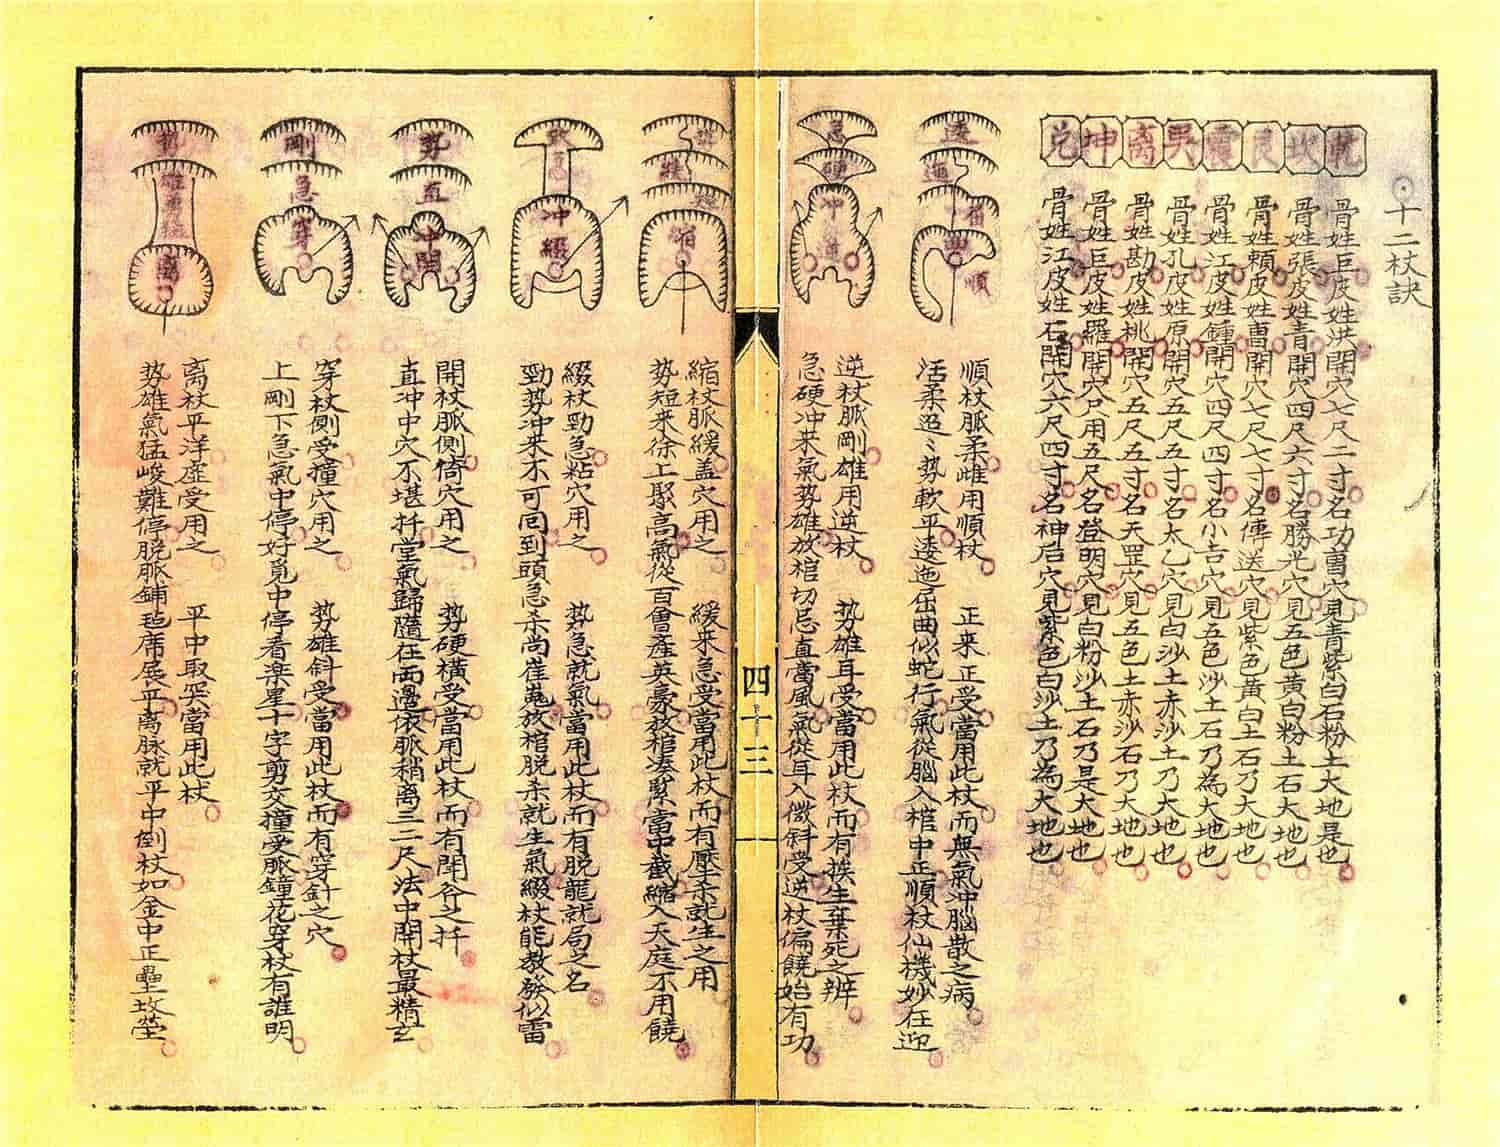 十二杖訣
乾 骨姓巨皮姓洪開穴七尺二寸名功曹穴見青紫白石粉土大地是也
坎 骨姓張皮姓青開穴四尺六寸名勝光穴見五色黃白粉土石大地也
艮 骨姓賴皮姓曹開穴七尺七寸名傳送穴見紫色黃白土石乃大地也
震 骨姓江皮姓鍾開穴四尺四寸名小吉穴見五色沙土石乃為大地也
巽 骨姓孔皮姓原開穴五尺五寸名太乙穴見白沙土赤沙土乃大地也
离 骨姓勘皮姓桃開穴五尺五寸名天罡穴見五色土赤沙石乃大地也
坤 骨姓巨皮姓羅開穴只用五尺名登明穴見白粉沙土石乃是大地也
兑 骨姓江皮姓石開穴六尺四寸名神后穴見紫色白沙土乃為大地也
逶
迤
屈
曲
順
順杖脈柔雌用順杖 正來正受當用此杖而無氣沖腦散之病
活柔迢〻勢軟平逶迤屈曲似蛇行氣從腦入棺中正順杖仙機妙在迎
急
硬
冲
逆
逆杖脈剛雄用逆杖 势雄耳受當用此杖而有挨生棄死之辨
急硬冲來氣势雄放棺切忌直當風氣從耳入微斜受逆杖偏饒始有功
势
短
縮
縮杖脈緩盖穴用之 緩来急受當用此杖而有壓杀就生之用
势短来徐上聚高氣從百會產英豪放棺凑緊當中截縮入天庭不用饒
急
冲
綴
綴杖勁急粘穴用之 势急就氣當用此杖而有脱龍就局之名
勁势冲来不可回到頭急杀尚崔嵬放棺脱杀就生氣綴杖能教發似雷
势
直
冲
開
開杖脈側倚穴用之 势硬橫受當用此杖而有開斧之扦
直冲中穴不堪扦堂氣歸隨在兩邊依脈稍离三二尺法中開杖最精玄
剛
急
穿
穿杖側受撞穴用之 势雄斜受當用此杖而有穿針之穴
上剛下急氣中停好覓中停看楽星十字剪交撞受脈鐘花穿杖有誰明
势
雄
氣
猛
离
离杖平洋虛受用之 平中取突當用此杖
势雄氣猛峻難停脱脈鋪毡席展平离脉就平中倒杖如金中正壘坟塋
四十三